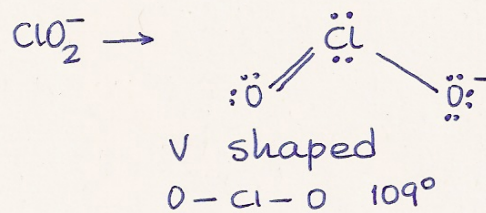 ClO₂⁻ → Cl
O O⁻
V shaped
O – Cl – O 109°